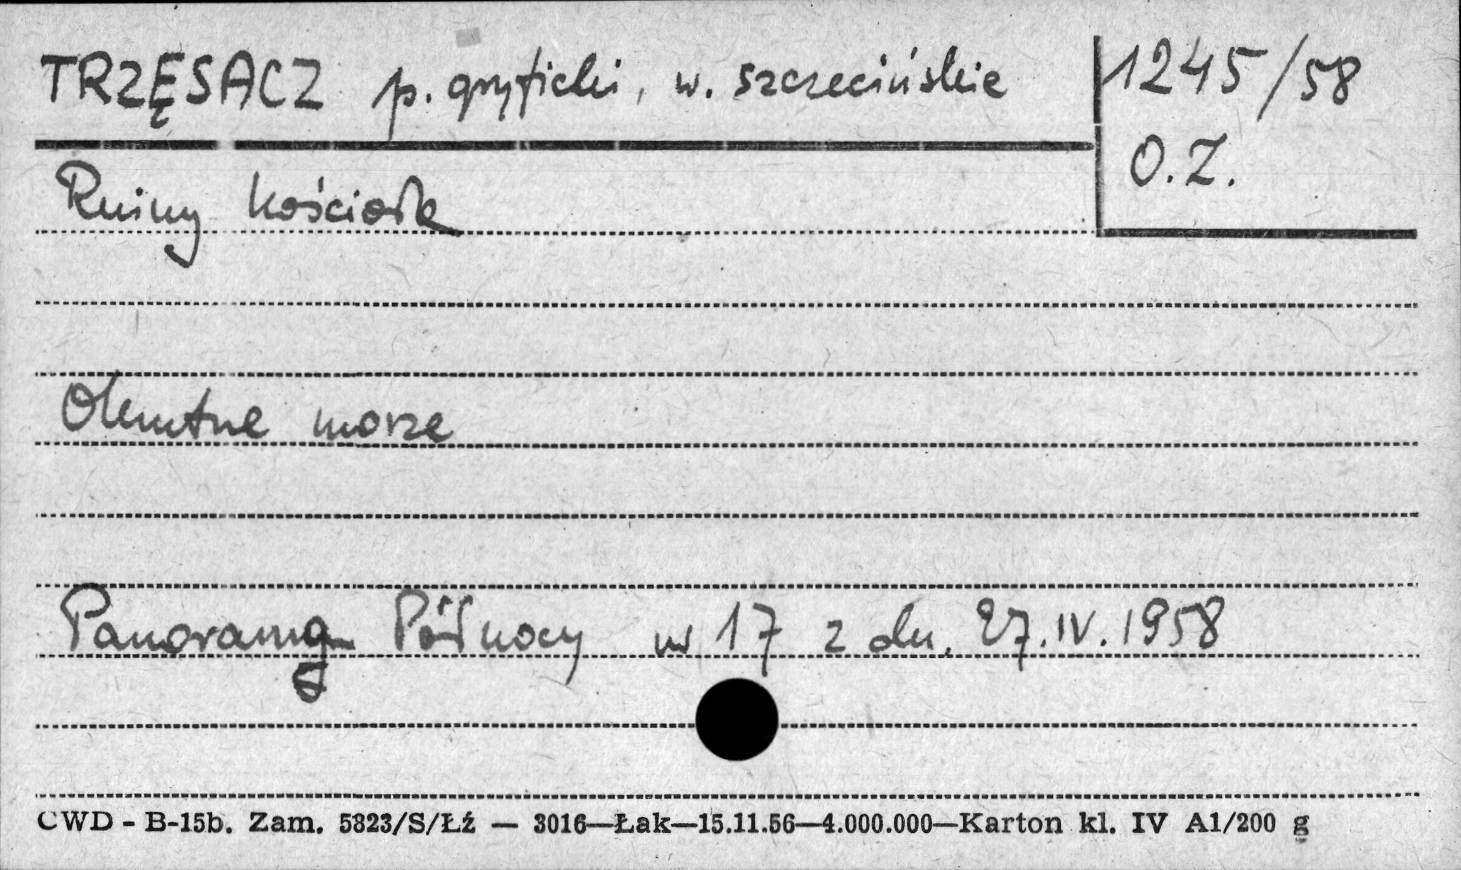 TRZĘSACZ p. gryficki, w. szczecińskie
1245/58
O.Z.
Ruiny kościoła
Okrutne morze
Panorama Północy nr 17 z dn. 27.IV.1958
CWD - B-15b. Zam. 5823/S/Łź — 3016—Łak—15.11.56—4.000.000—Karton kl. IV A1/200 g